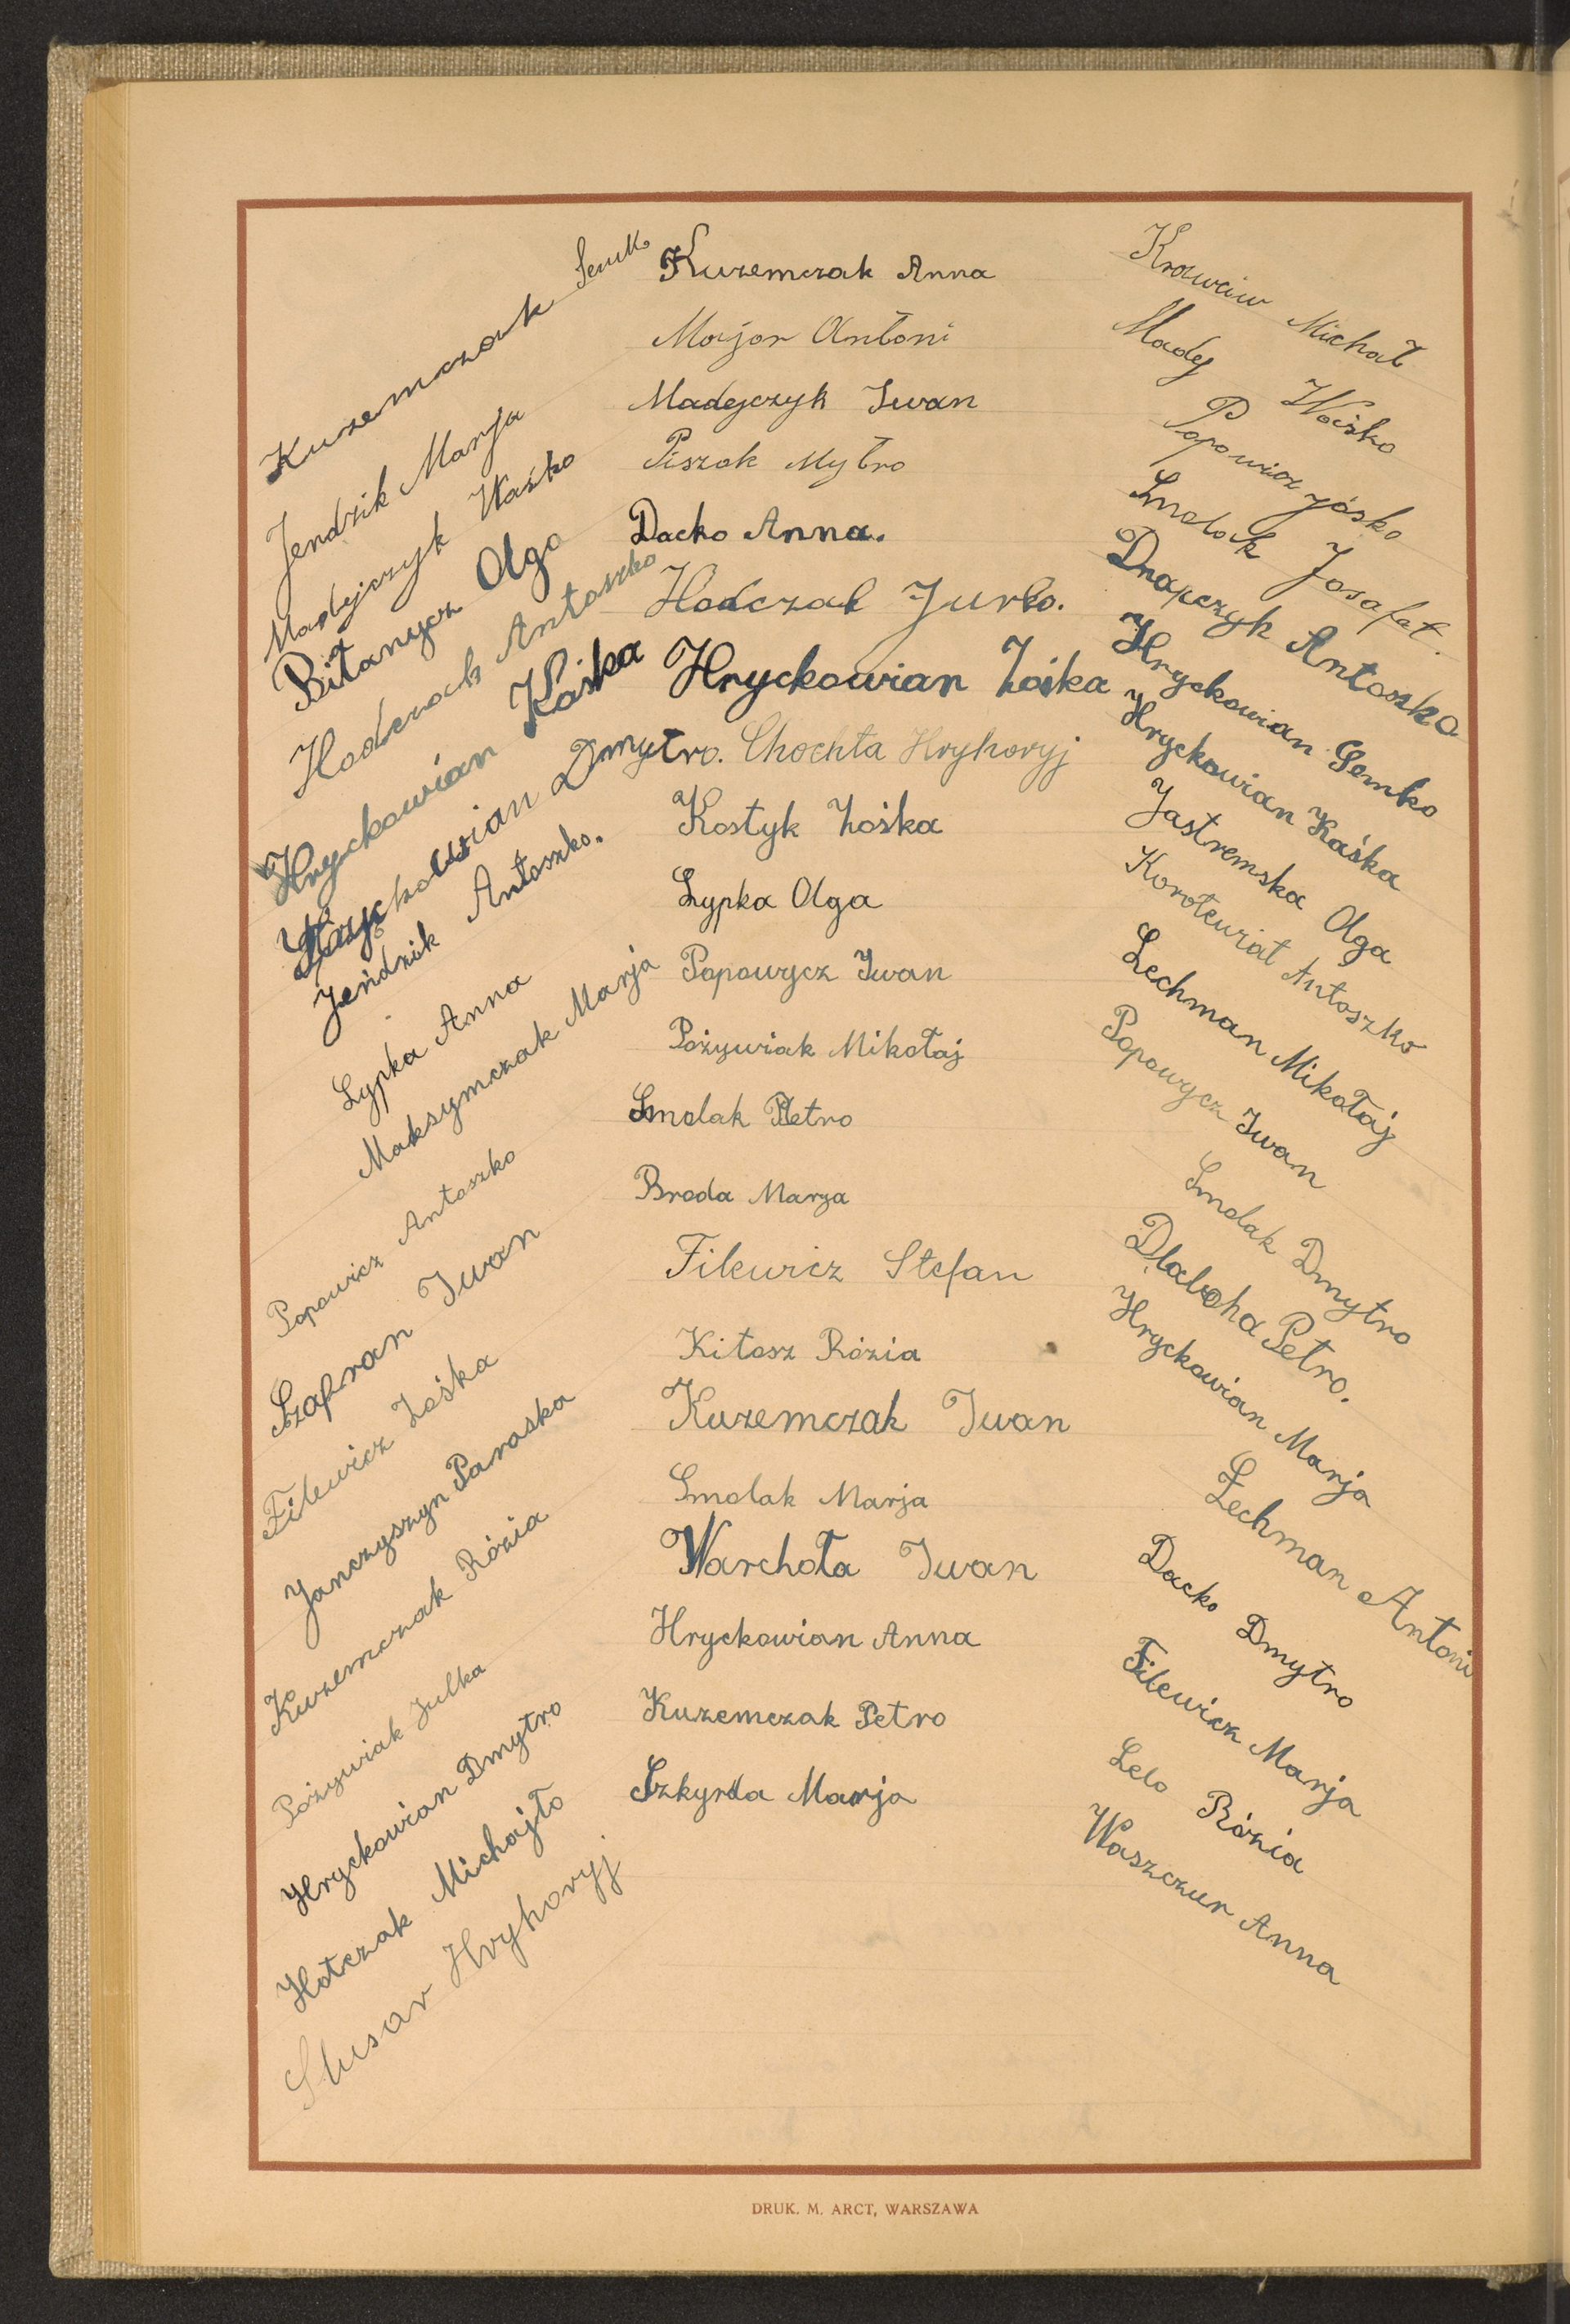 Kuzemczak Semko
Jendzik Marja
Madejczyk Waśko
Bitanycz Olga
Hodczak Antoszko
Hryckowian Kaśka
Hryckowian Dmytro.
Jendzik Antoszko.
Lypka Anna
Maksymczak Marja
Popowicz Antoszko
Szafran Iwan
Filewicz Zośka
Janczyszyn Paraska
Kuzemczak Rózia
Pożywiak Julka
Hryckowian Dmytro
Hotczak Michajło
Slusar Hryhoryj
Kuzemczak Anna
Major Antoni
Madejczyk Iwan
Piszak Mytro
Dacko Anna.
Hodczak Jurko.
Hryckowian Zośka
Chochła Hryhoryj
Kostyk Zośka
Lypka Olga
Popowycz Iwan
Pożywiak Mikołaj
Smolak Petro
Broda Marja
Filewicz Stefan
Kitasz Rózia
Kuzemczak Iwan
Smolak Marja
Warchoła Iwan
Hryckowian Anna
Kuzemczak Petro
Szkyrda Marja
Krawciw Michał
Madej Waśko
Popowicz Jośko
Smolak Josafat.
Drapczyk Antoszko
Hryckowian Semko
Hryckowian Kaśka
Jastremska Olga
Antoszko
Lechman Mikołaj
Popowycz Iwan
Smolak Dmytro
Dłaboha Petro.
Hryckowian Marja
Lechman Antoni
Dacko Dmytro
Filewicz Marja
Lelo Rózia
Waszczur Anna
DRUK. M. ARCT, WARSZAWA